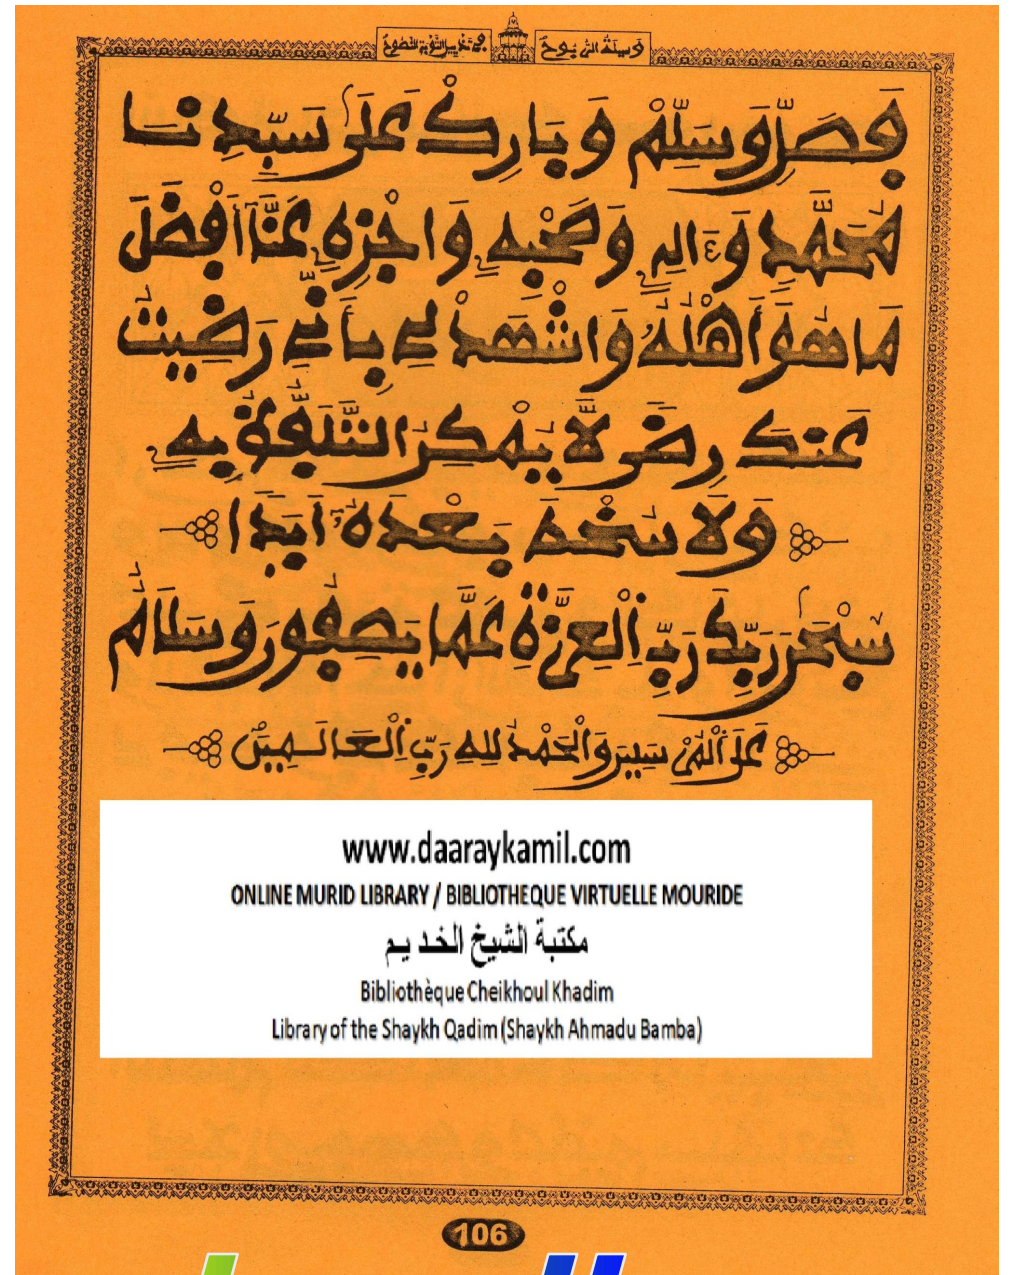 وَسِيلَةُ الرُّبُوحْ
فِي تَخْمِيسِ التَّوْبَةِ النَّصُوحْ
فَصَلِّ وَسَلِّمْ وَبَارِكْ عَلَىٰ سَيِّدِنَا
مُحَمَّدٍ وَءَالِهِ وَصَحْبِهِ وَاجْزِهِ عَنَّا أَفْضَلَ
مَا هُوَ أَهْلُهُ وَاشْهَدْ لِي بِأَنِّي رَضِيتُ
عَنكَ رِضًى لَّا يُمْكِنُ التَّلَفُّظُ بِهِ
وَلَا سُخْطَ بَعْدَهُ أَبَدًا
سُبْحَٰنَ رَبِّكَ رَبِّ الْعِزَّةِ عَمَّا يَصِفُونَ وَسَلَامٌ
عَلَى الْمُرْسَلِينَ وَالْحَمْدُ لِلهِ رَبِّ الْعَالَمِينَ
www.daaraykamil.com
ONLINE MURID LIBRARY / BIBLIOTHEQUE VIRTUELLE MOURIDE
مكتبة الشيخ الخديم
Bibliothèque Cheikhoul Khadim
Library of the Shaykh Qadim (Shaykh Ahmadu Bamba)
106